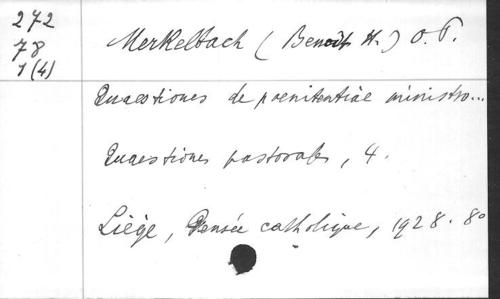 272
78
1(4)
Merkelbach (Benoît H.) O.P.
Quaestiones de poenitentiae ministro...
Quaestiones pastorales, 4.
Liége, Pensée catholique, 1928. 8°